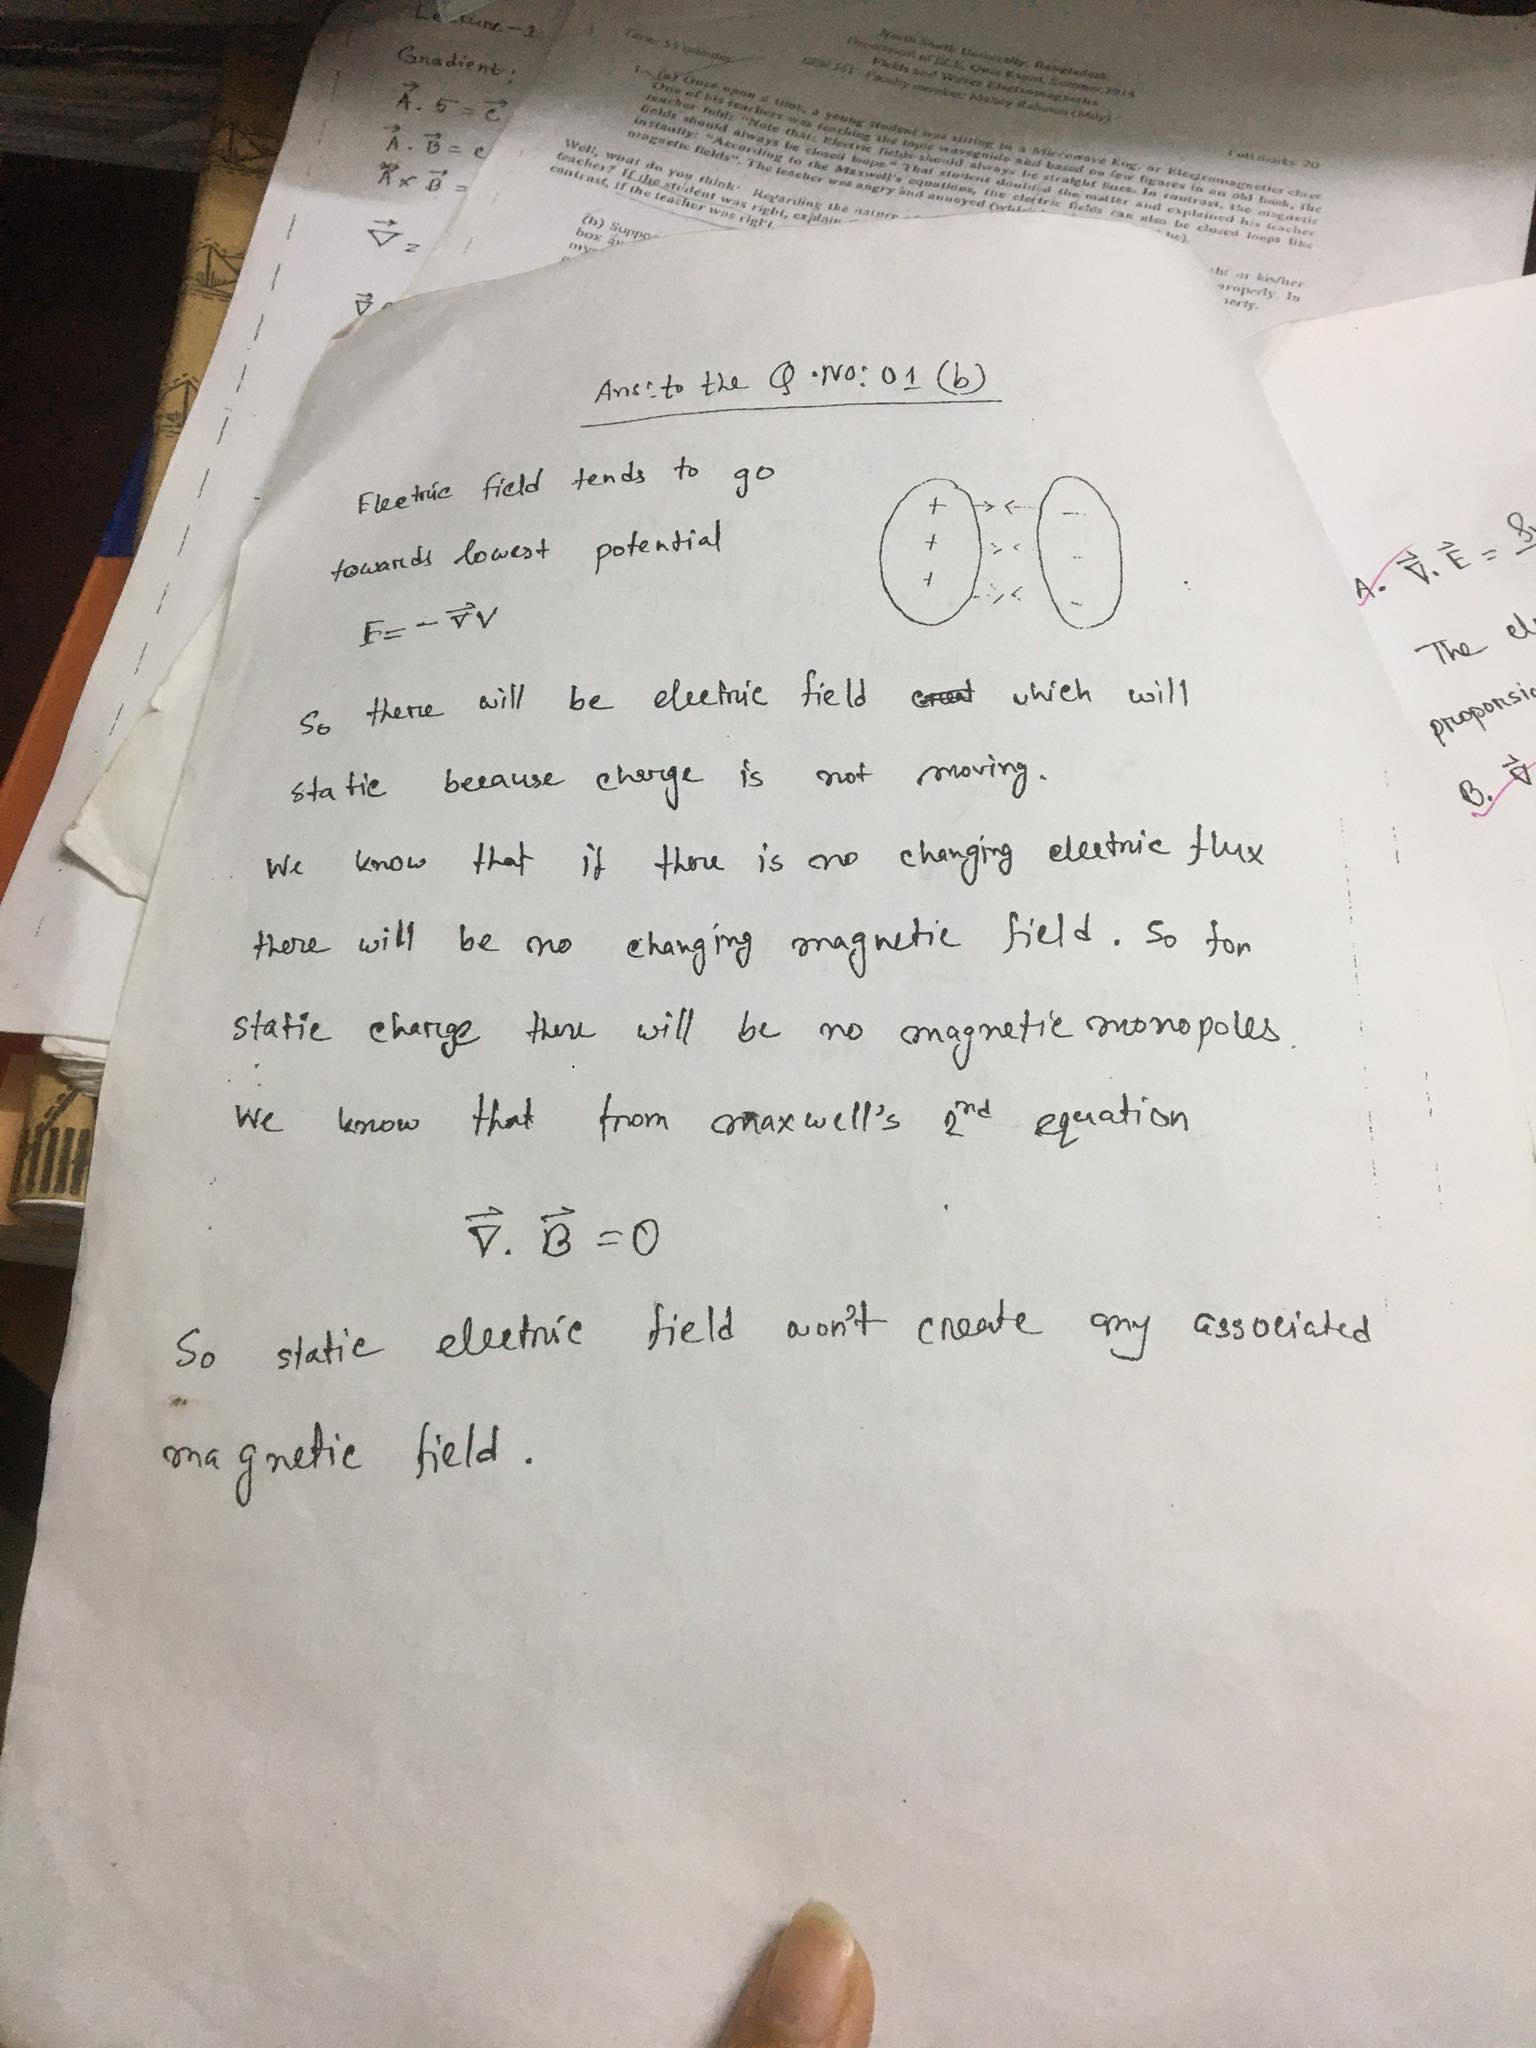 Lecture-1
Gradient:
A⃗. 5 = c⃗
A⃗. B⃗ = c
A⃗ x B⃗ =
∇⃗
North South University, Bangladesh
Fields and Waves Electromagnetics
Full marks 20
1. (a) Once upon a time, a young student was sitting in a Microwave Eng. or Electromagnetics class
One of his teachers was teaching the topic waveguide and based on few figures in an old book, the
teacher told; "Note that: Electric fields should always be straight lines. In contrast, the magnetic
fields should always be closed loops." That student doubted the matter and explained his teacher
instantly: "According to the Maxwell's equations, the electric fields can also be closed loops like
magnetic fields". The teacher was angry and annoyed
Well, what do you think? Regarding the nature
teacher? If the student was right, explain
contrast, if the teacher was right
ht or his/her
properly. In
(b) Suppo
box
my
Ans: to the Q.No: 01 (b)
Electric field tends to go
towards lowest potential
E = - ∇⃗V
+ -
+ -
+ -
So there will be electric field which will
static because charge is not moving.
We know that if there is no changing electric flux
there will be no changing magnetic field. So for
static charge there will be no magnetic monopoles.
We know that from maxwell's 2nd equation
∇⃗. B⃗ = 0
So static electric field won't create any associated
magnetic field.
A. ∇⃗. E⃗ =
The el
proporsi
B. ∇⃗